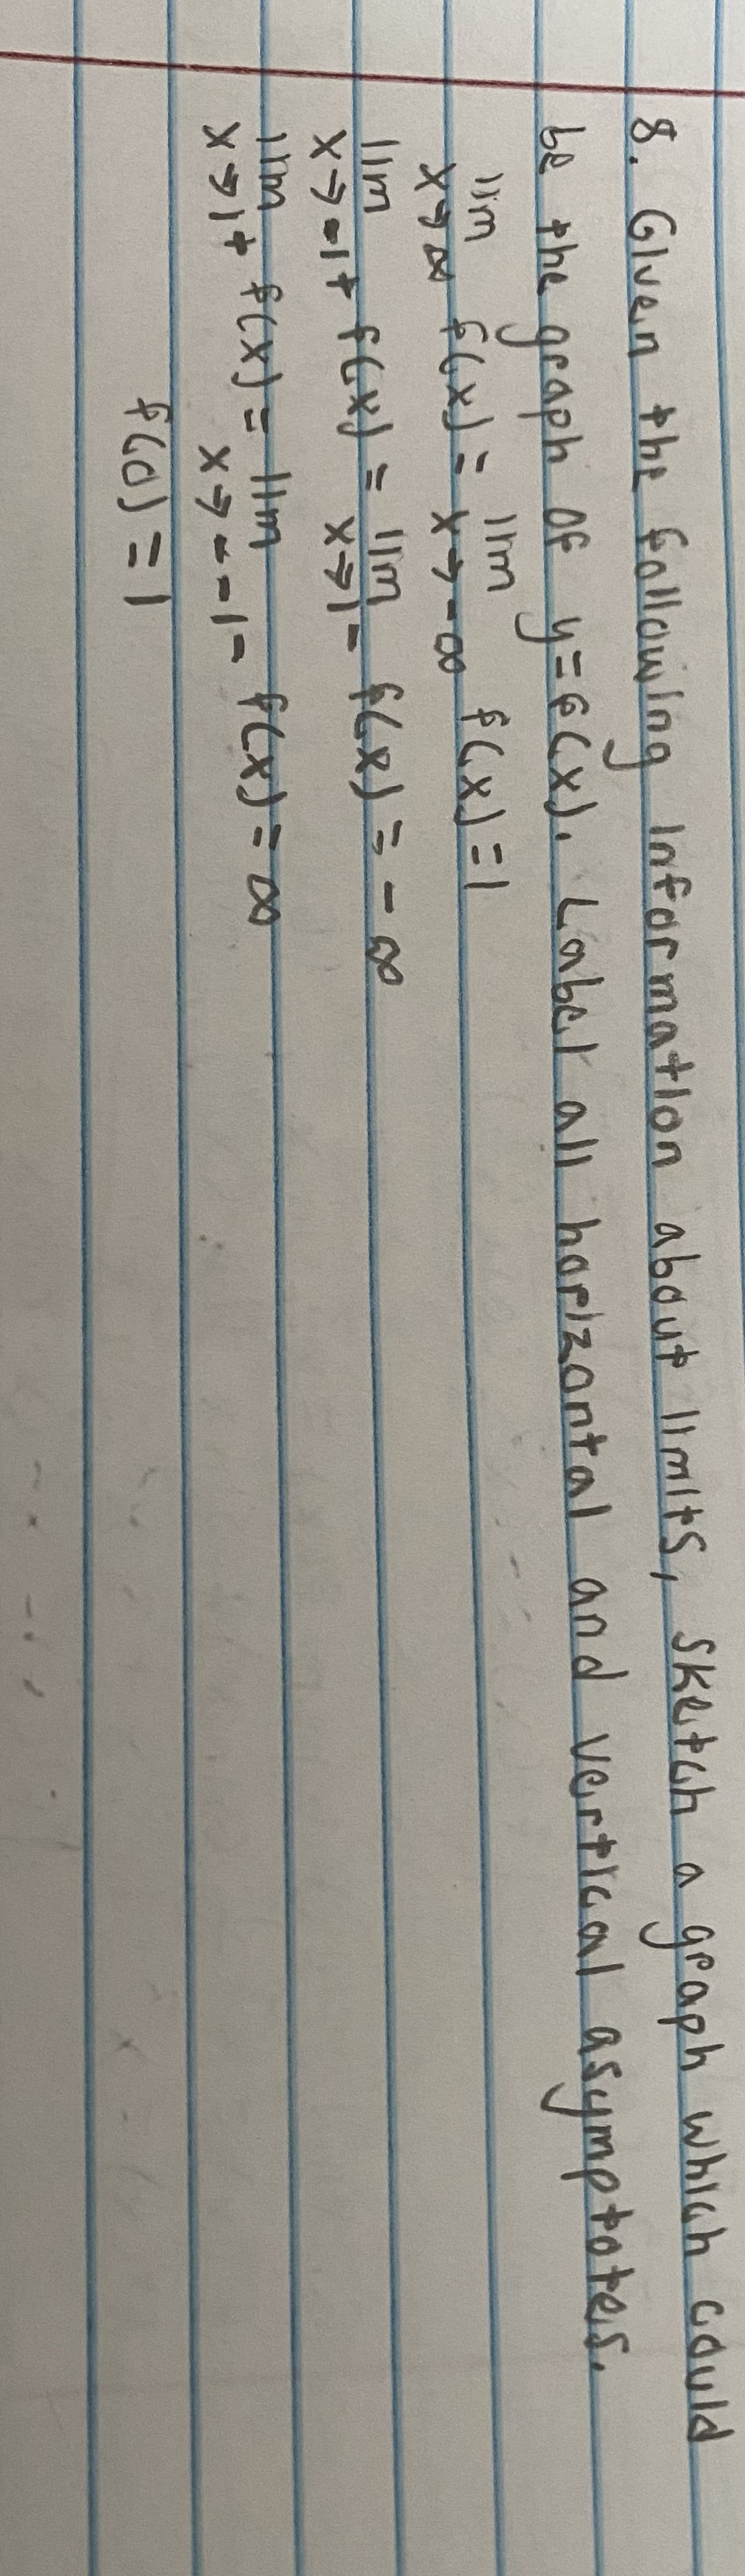 8. Given the following information about limits, sketch a graph which could
be the graph of y=f(x). Label all horizontal and vertical asymptotes.
lim x→∞ f(x) = lim x→-∞ f(x) = 1
lim x→-1+ f(x) = lim x→1- f(x) = -∞
lim x→1+ f(x) = lim x→--1- f(x) = ∞
f(0) = 1